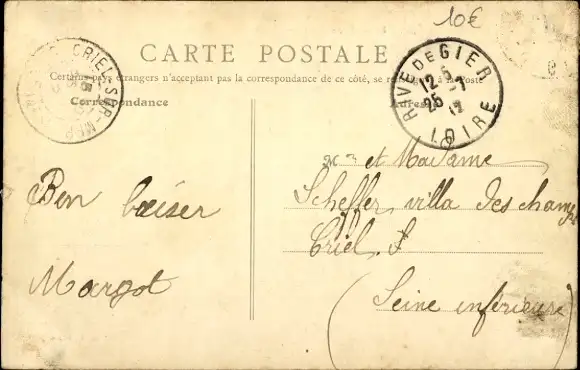 10€
CARTE POSTALE
Certains pays étrangers n'acceptant pas la correspondance de ce côté, se à la Poste
Correspondance
CRIEL-SUR-MER
RIVE DE GIER
12
25 -7
LOIRE
Mr et Madame
Scheffer villa des champs
Criel. S
(Seine inférieure)
Bon baiser
Margot